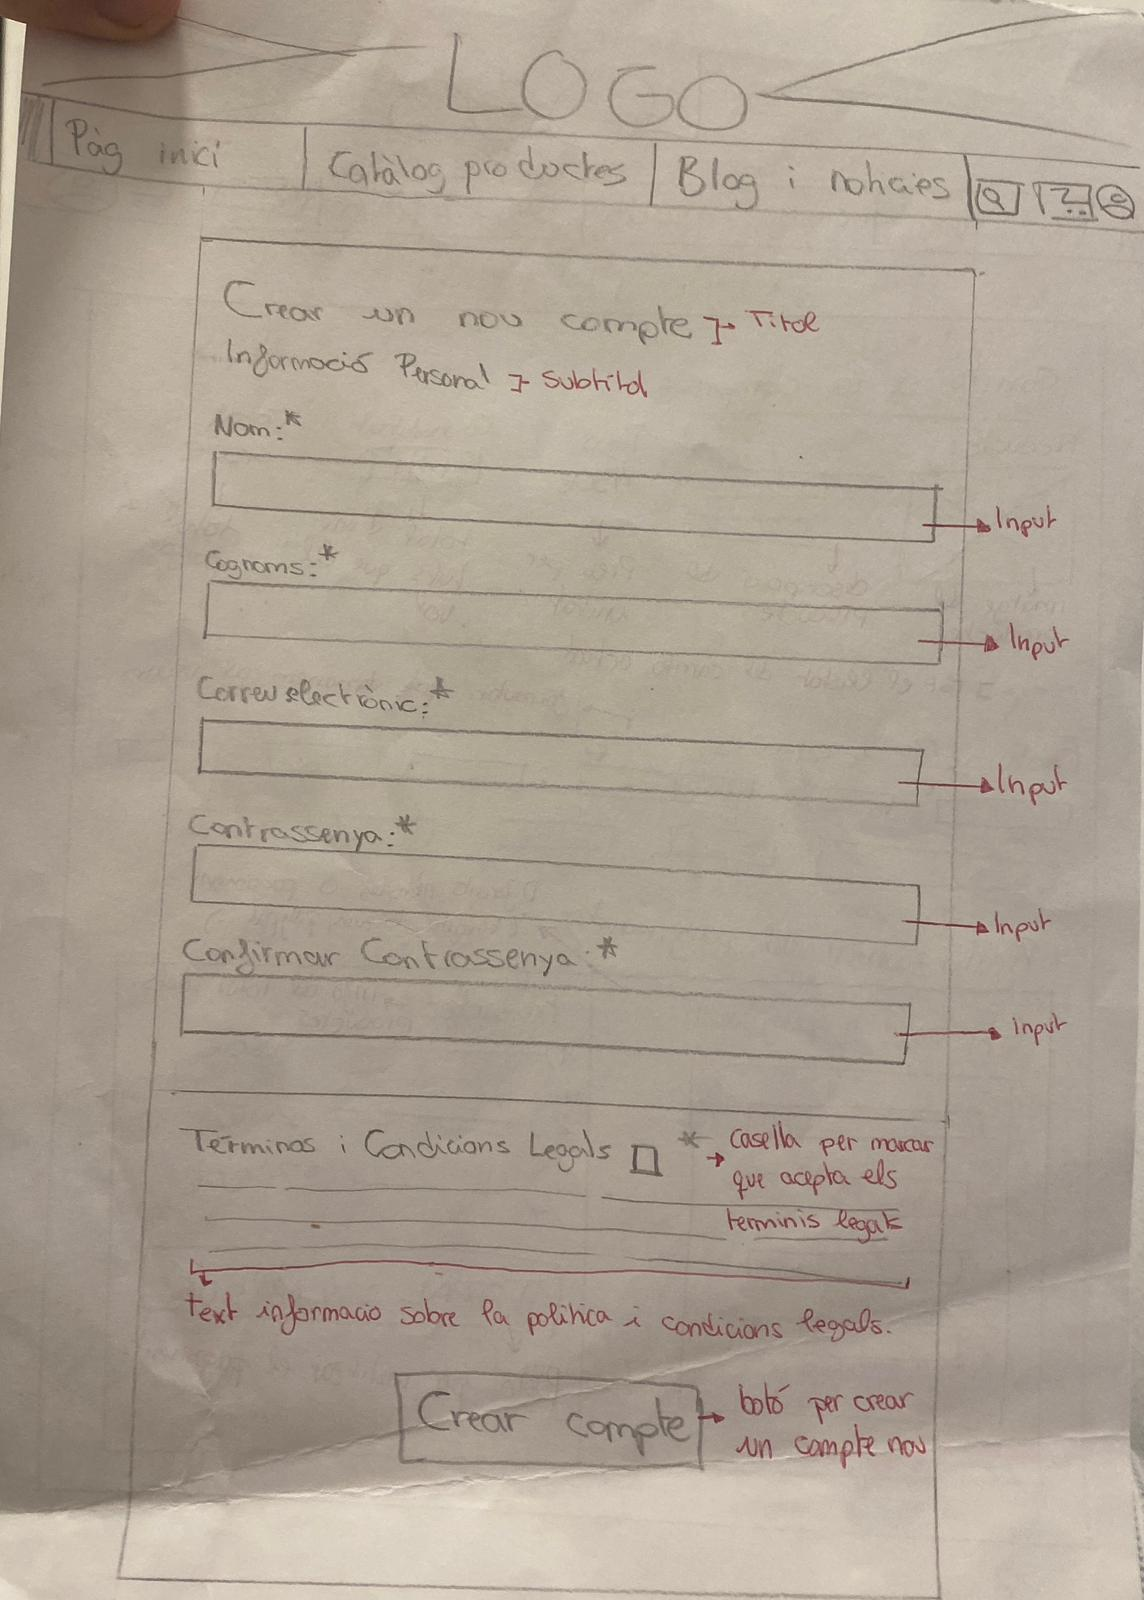 LOGO
Pàg inici
Catàlog productes
Blog i noticies
Crear un nou compte → Titol
Informació Personal → Subtitol
Nom:*
Input
Cognoms:*
Input
Correu electrònic:*
Input
Contrassenya:*
Input
Confirmar Contrassenya:*
input
Términos i Condicions Legals * → Casella per marcar
que acepta els
terminis legals
text informacio sobre la politica i condicions legals.
Crear compte → botó per crear
un compte nou